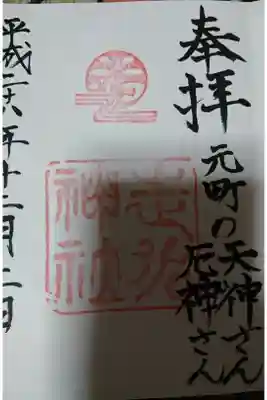 奉拝
元町の
天神さん
厄神さん
走水
神社
平成二六年十二月二日